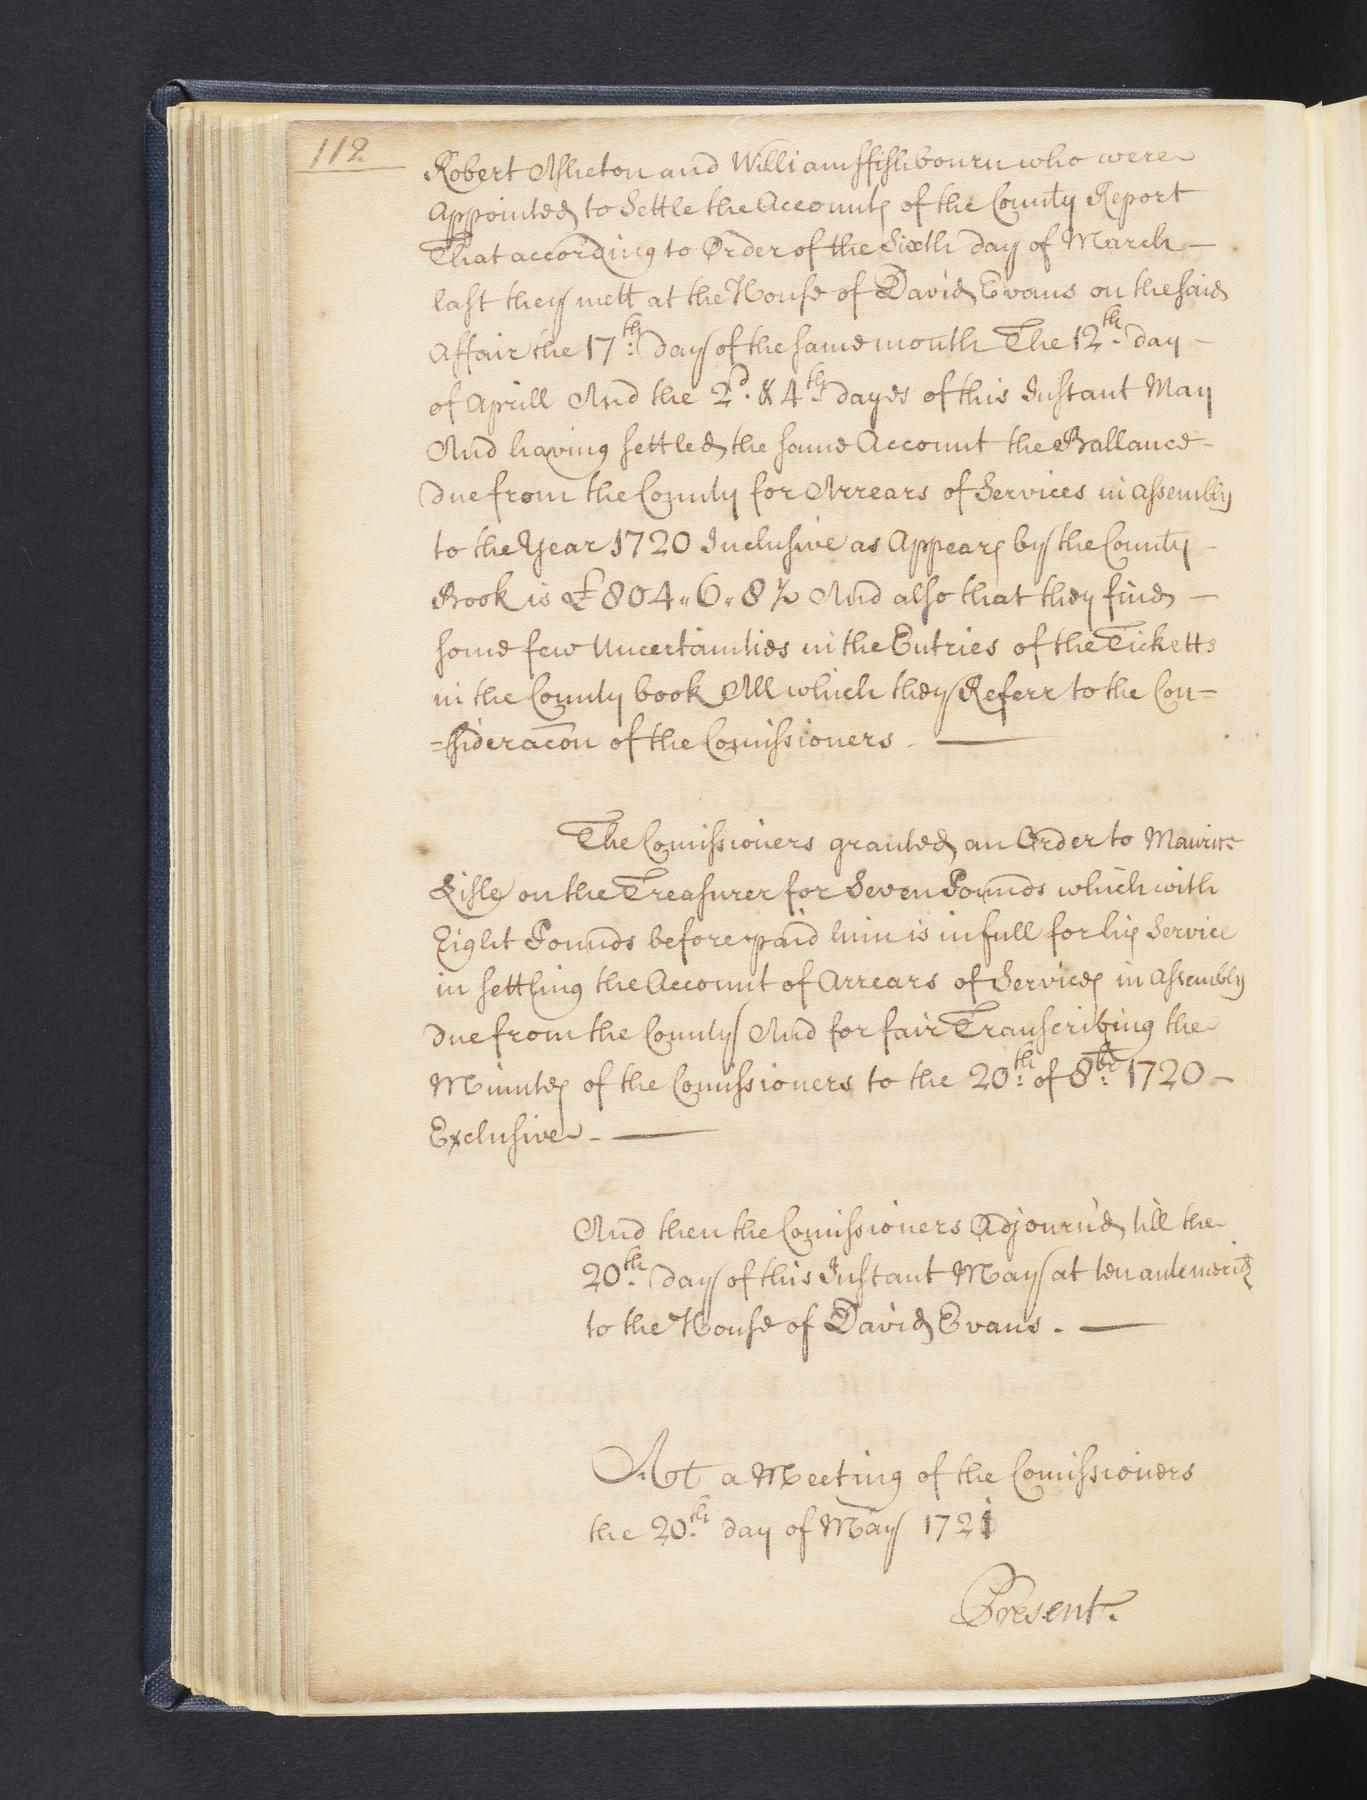 112
Robert Assheton and William ffishbourn who were
Appointed to Settle the Accounts of the County Report
That according to Order of the Sixth day of March —
last they mett at the House of David Evans on the said
Affair the 17th: day of the same month The 12th. day —
of Aprill And the 2d. & 4th: dayes of this Instant May
And having settled the same Account the Ballance —
due from the County for Arrears of Services in Assembly
to the Year 1720 Inclusive as Appears by the County —
Book is £804„6„8½ And also that they find —
some few Uncertainties in the Entries of the Ticketts
in the County book All which they Referr to the Con-
=sideracōn of the Comissioners. —
The Comissioners granted an Order to Maurice
Lisle on the Treasurer for Seven Pounds which with
Eight Pounds before paid him is in full for his Service
in settling the Account of Arrears of Services in Assembly
due from the County And for fair Transcribing the
Minutes of the Comissioners to the 20th: of 8br: 1720 —
Exclusive. —
And then the Comissioners Adjourn'd till the
20th. day of this Instant May at ten antemerid
to the House of David Evans. —
Att a Meeting of the Comissioners
the 20th. day of May 1721
Present.